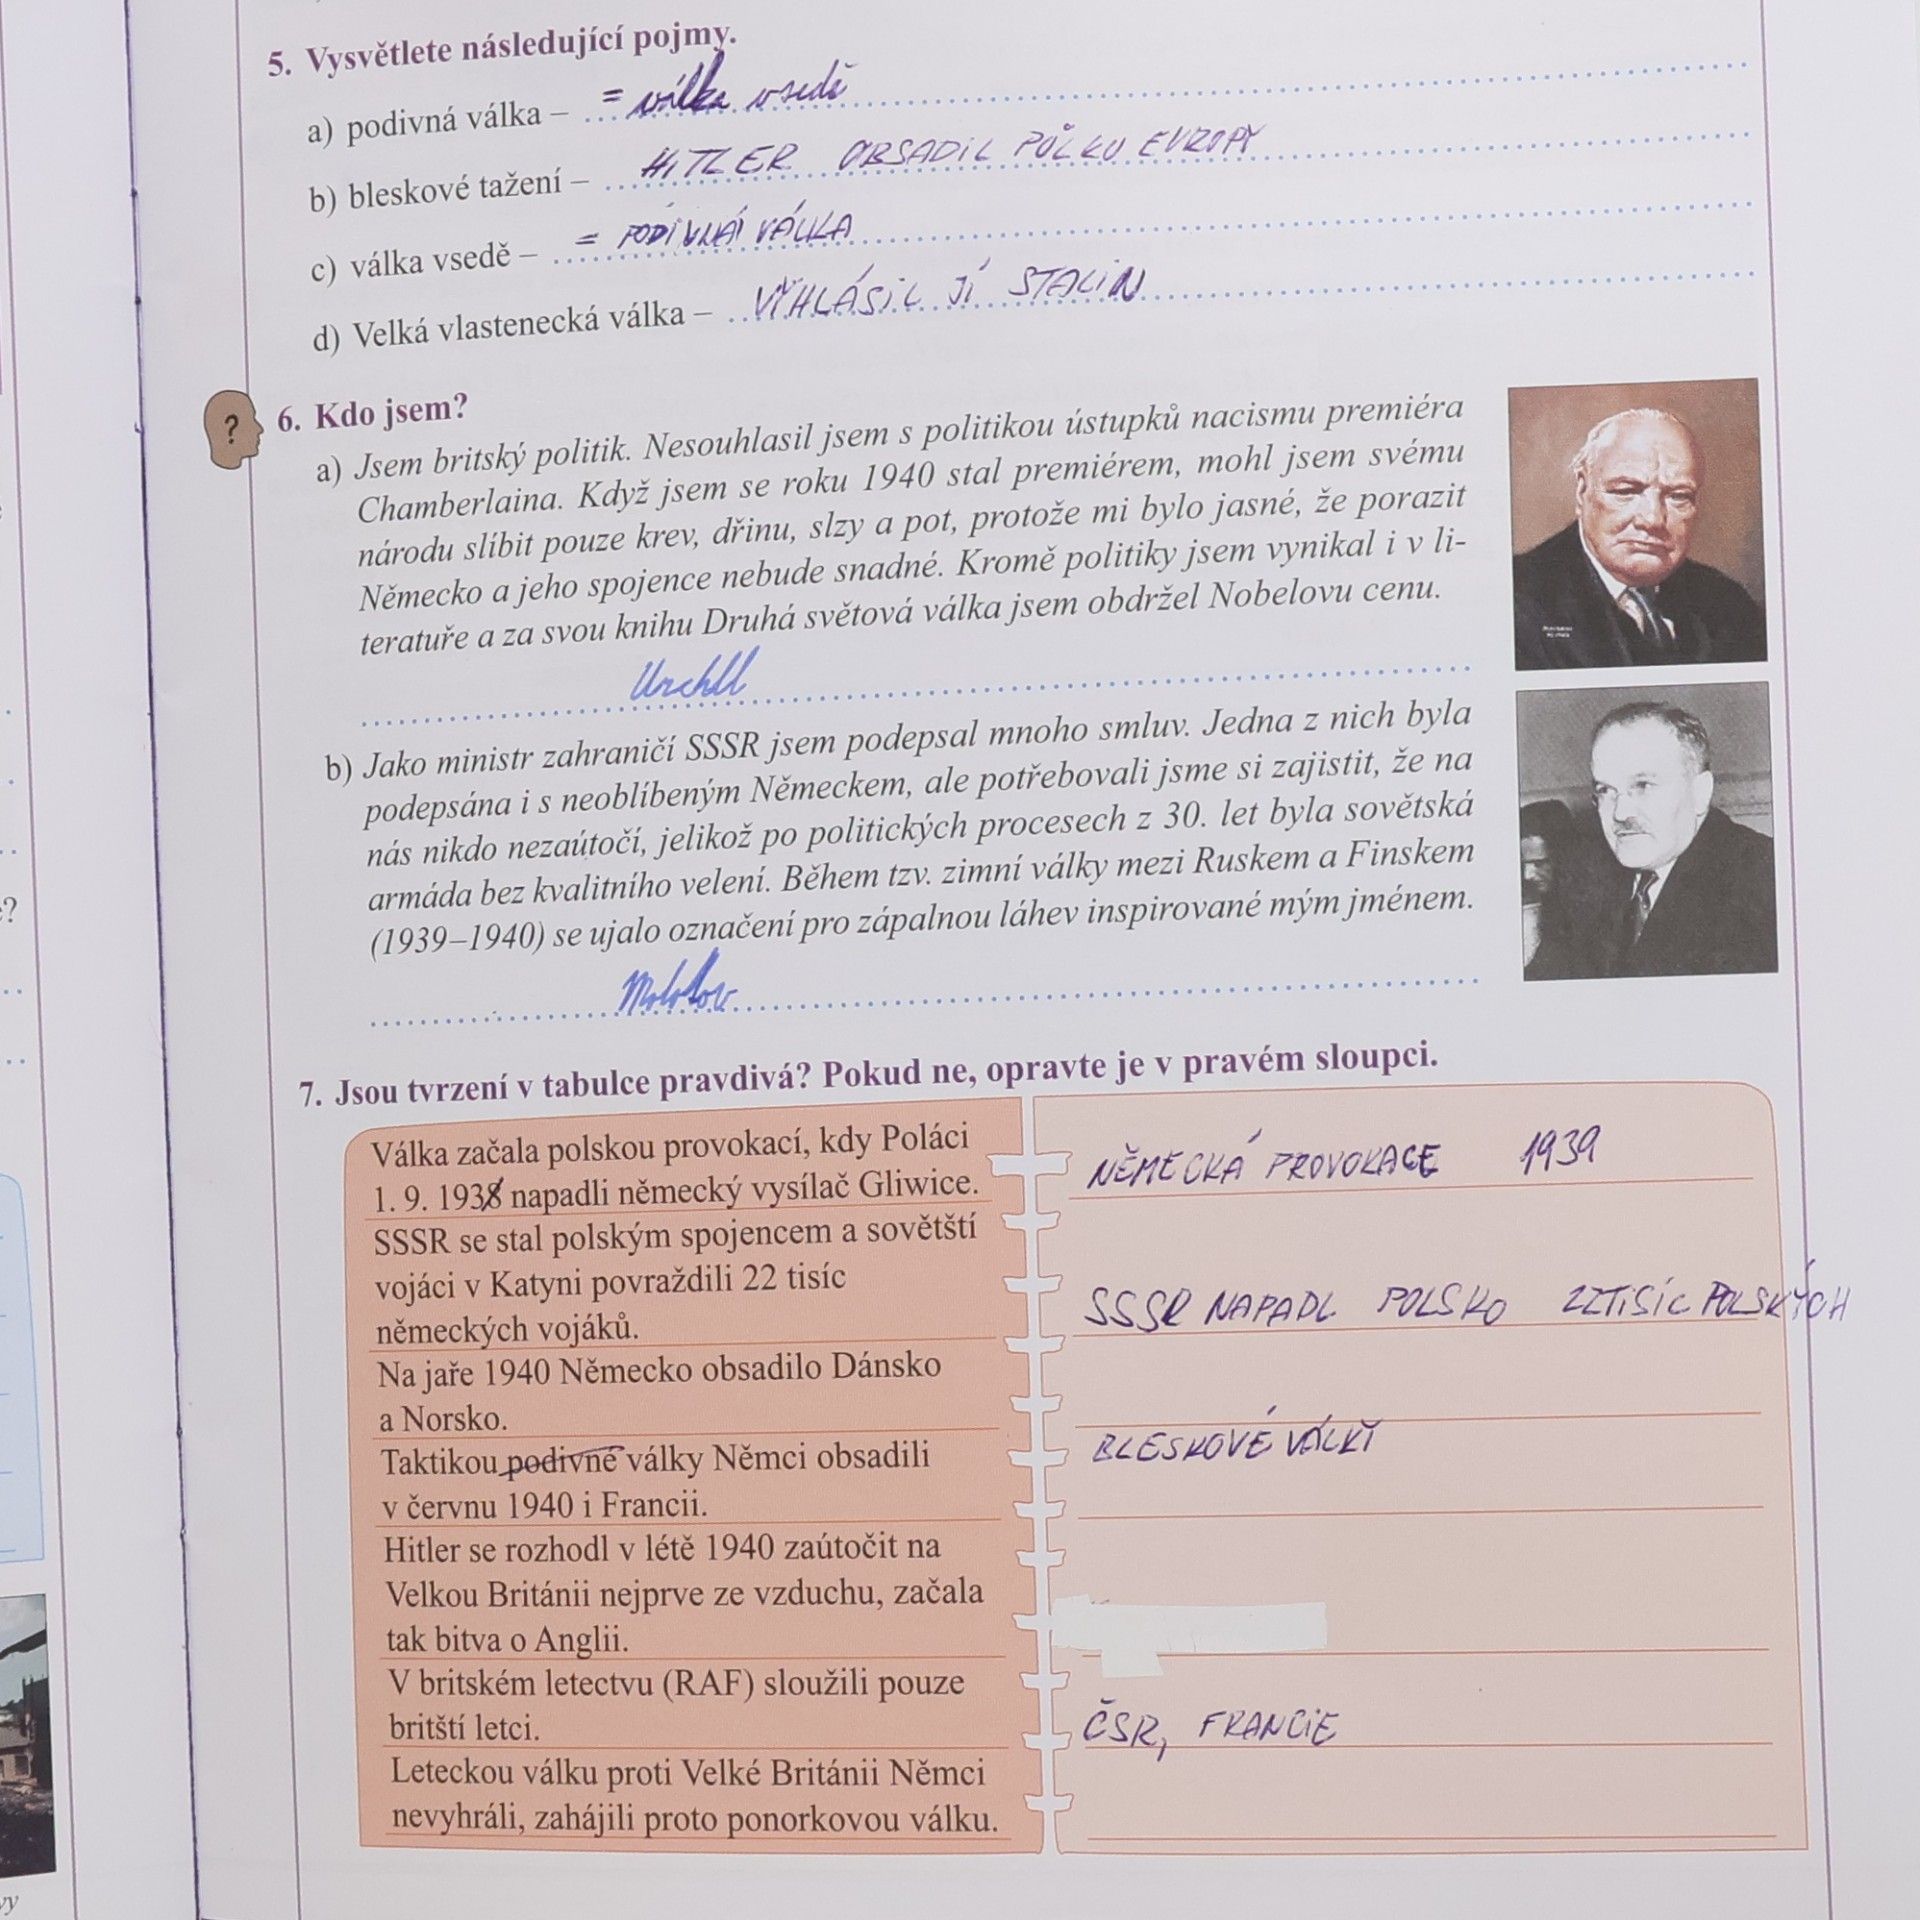 5. Vysvětlete následující pojmy.
a) podivná válka – = válka vsedě
b) bleskové tažení – HITLER OBSADIL PŮLKU EVROPY
c) válka vsedě – = PODIVNÁ VÁLKA
d) Velká vlastenecká válka – VYHLÁSIL JÍ STALIN
?
6. Kdo jsem?
a) Jsem britský politik. Nesouhlasil jsem s politikou ústupků nacismu premiéra
Chamberlaina. Když jsem se roku 1940 stal premiérem, mohl jsem svému
národu slíbit pouze krev, dřinu, slzy a pot, protože mi bylo jasné, že porazit
Německo a jeho spojence nebude snadné. Kromě politiky jsem vynikal i v li-
teratuře a za svou knihu Druhá světová válka jsem obdržel Nobelovu cenu.
b) Jako ministr zahraničí SSSR jsem podepsal mnoho smluv. Jedna z nich byla
podepsána i s neoblíbeným Německem, ale potřebovali jsme si zajistit, že na
nás nikdo nezaútočí, jelikož po politických procesech z 30. let byla sovětská
armáda bez kvalitního velení. Během tzv. zimní války mezi Ruskem a Finskem
(1939–1940) se ujalo označení pro zápalnou láhev inspirované mým jménem.
Molotov
7. Jsou tvrzení v tabulce pravdivá? Pokud ne, opravte je v pravém sloupci.
Válka začala polskou provokací, kdy Poláci
1. 9. 1938 napadli německý vysílač Gliwice.
NĚMECKÁ PROVOKACE 1939
SSSR se stal polským spojencem a sovětští
vojáci v Katyni povraždili 22 tisíc
německých vojáků.
SSSR NAPADL POLSKO 22TISÍC POLSKÝCH
Na jaře 1940 Německo obsadilo Dánsko
a Norsko.
Taktikou podivné války Němci obsadili
v červnu 1940 i Francii.
BLESKOVÉ VÁLKY
Hitler se rozhodl v létě 1940 zaútočit na
Velkou Británii nejprve ze vzduchu, začala
tak bitva o Anglii.
V britském letectvu (RAF) sloužili pouze
britští letci.
ČSR, FRANCIE
Leteckou válku proti Velké Británii Němci
nevyhráli, zahájili proto ponorkovou válku.